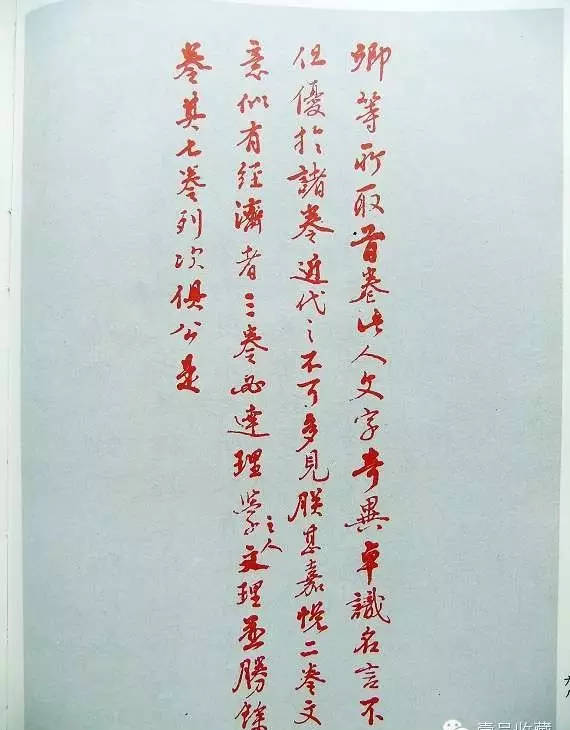 卿等所取首卷此人文字奇異卓識名言不
但優於諸卷近代之不可多見朕甚嘉悅二卷文
意似有經濟者三卷必達理學之人文理並勝餘
卷其七卷列次俱公是
六八
壹品收藏